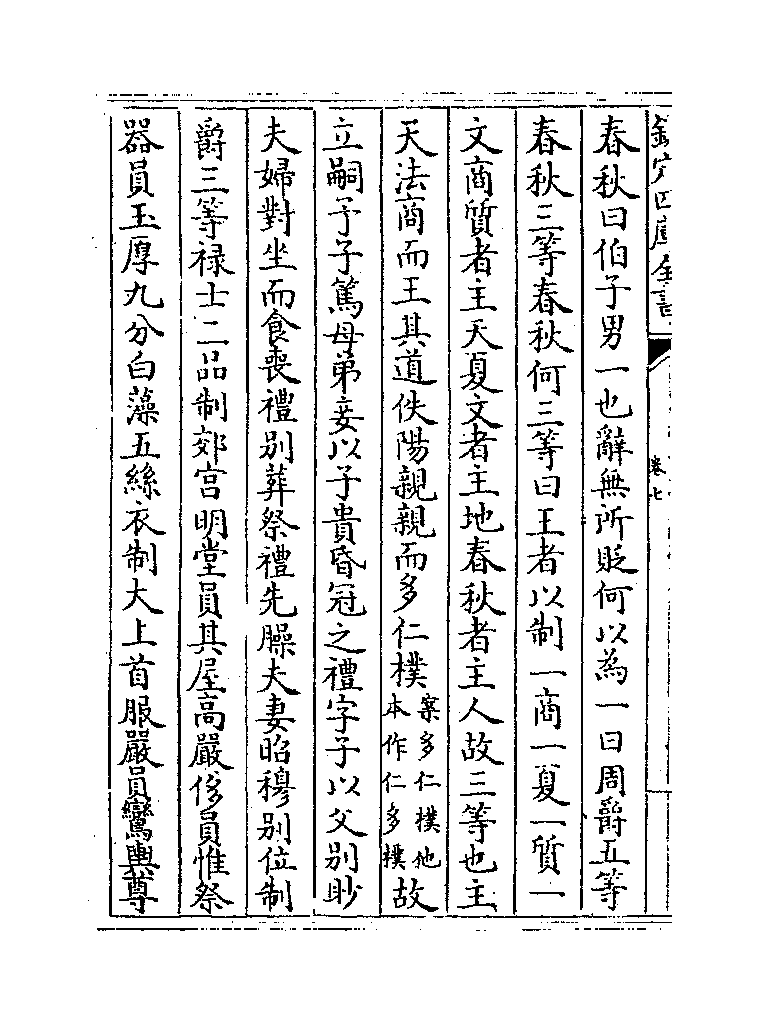 欽定四庫全書
卷七
春秋曰伯子男一也辭無所貶何以為一曰周爵五等
春秋三等春秋何三等曰王者以制一商一夏一質一
文商質者主天夏文者主地春秋者主人故三等也主
天法商而王其道佚陽親親而多仁樸案多仁樸他本作仁多樸故
立嗣予子篤母弟妾以子貴昏冠之禮字子以父別眇
夫婦對坐而食喪禮別葬祭禮先臊夫妻昭穆別位制
爵三等禄士二品制郊宫明堂員其屋高嚴侈員惟祭
器員玉厚九分白藻五絲衣制大上首服嚴員鸞輿尊